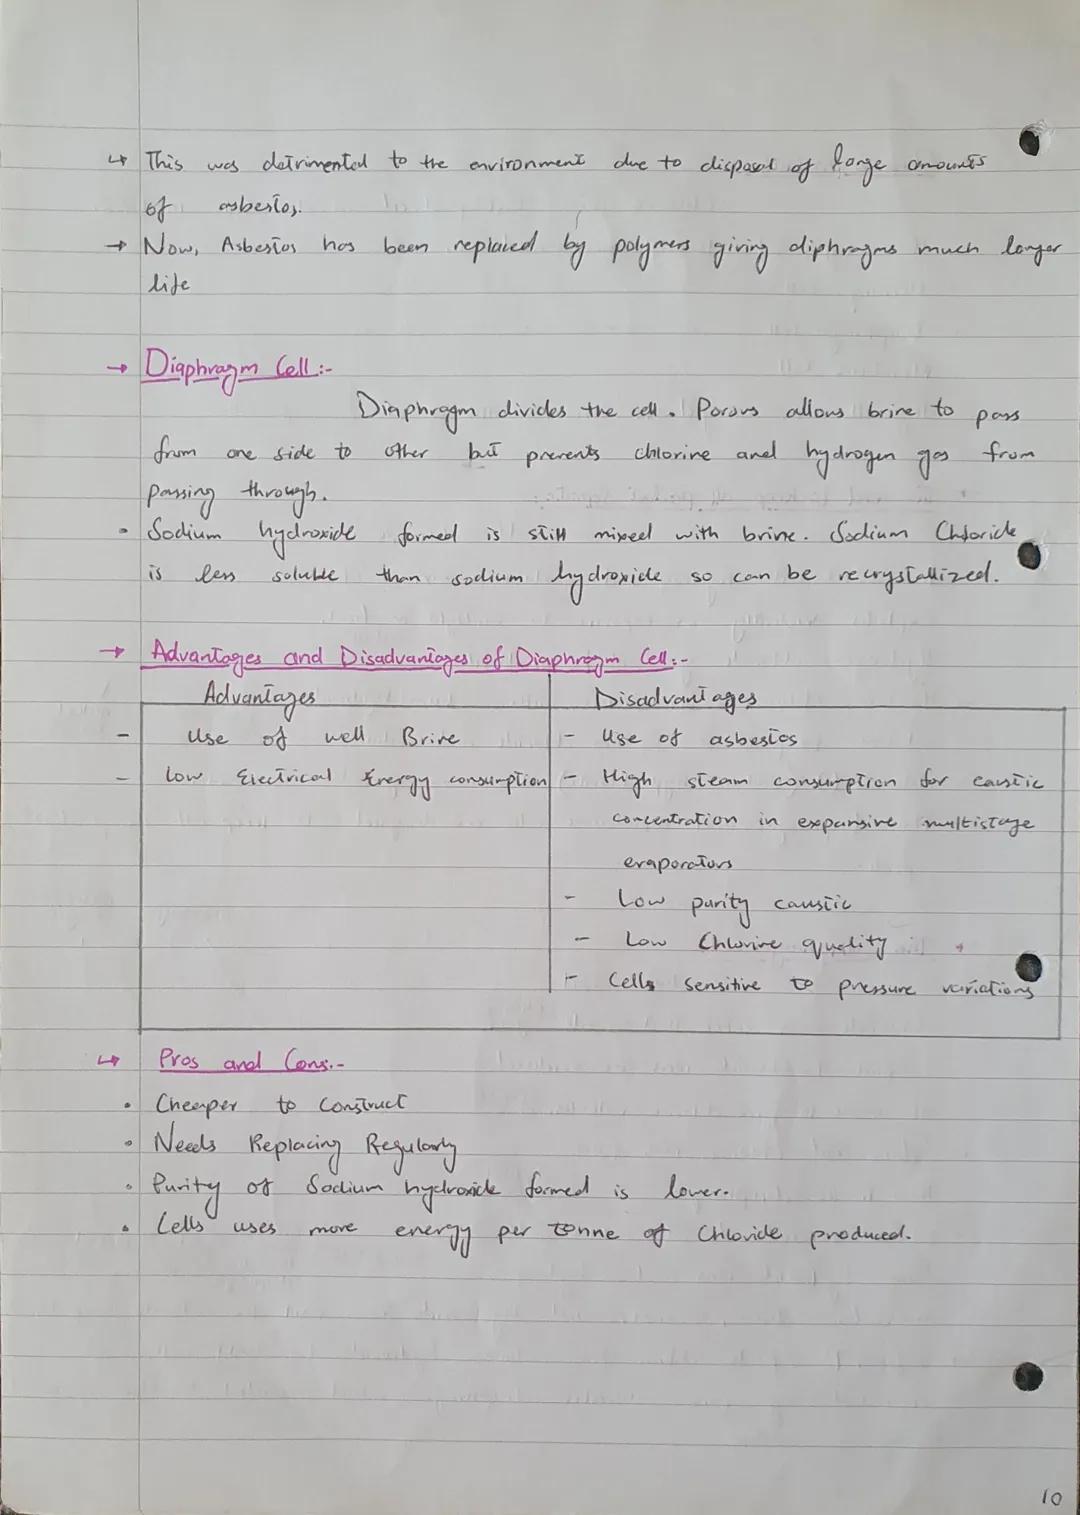 ↳ This was detrimented to the environment due to disposal of large amounts
of asbestos.
→ Now, Asbestos has been replaced by polymers giving diphragms much longer
life
→ Diaphragm Cell :-
Diaphragm divides the cell. Porous allows brine to pass
from one side to other but prevents chlorine and hydrogen gas from
passing through.
• Sodium hydroxide formed is still mixed with brine. Sodium Chloride
is less soluble than sodium hydroxide so can be recrystallized.
→ Advantages and Disadvantages of Diaphragm Cell:-
Advantages Disadvantages
- Use of well Brine - Use of asbestos
- Low Electrical Energy consumption - High steam consumption for caustic
concentration in expansive multistage
evaporators
- Low purity caustic
- Low Chlorine quality
- Cells sensitive to pressure variations
↳ Pros and Cons:-
• Cheaper to Construct
• Needs Replacing Regularly
• Purity of Sodium hydroxide formed is lower.
• Cells uses more energy per tonne of Chloride produced.
10